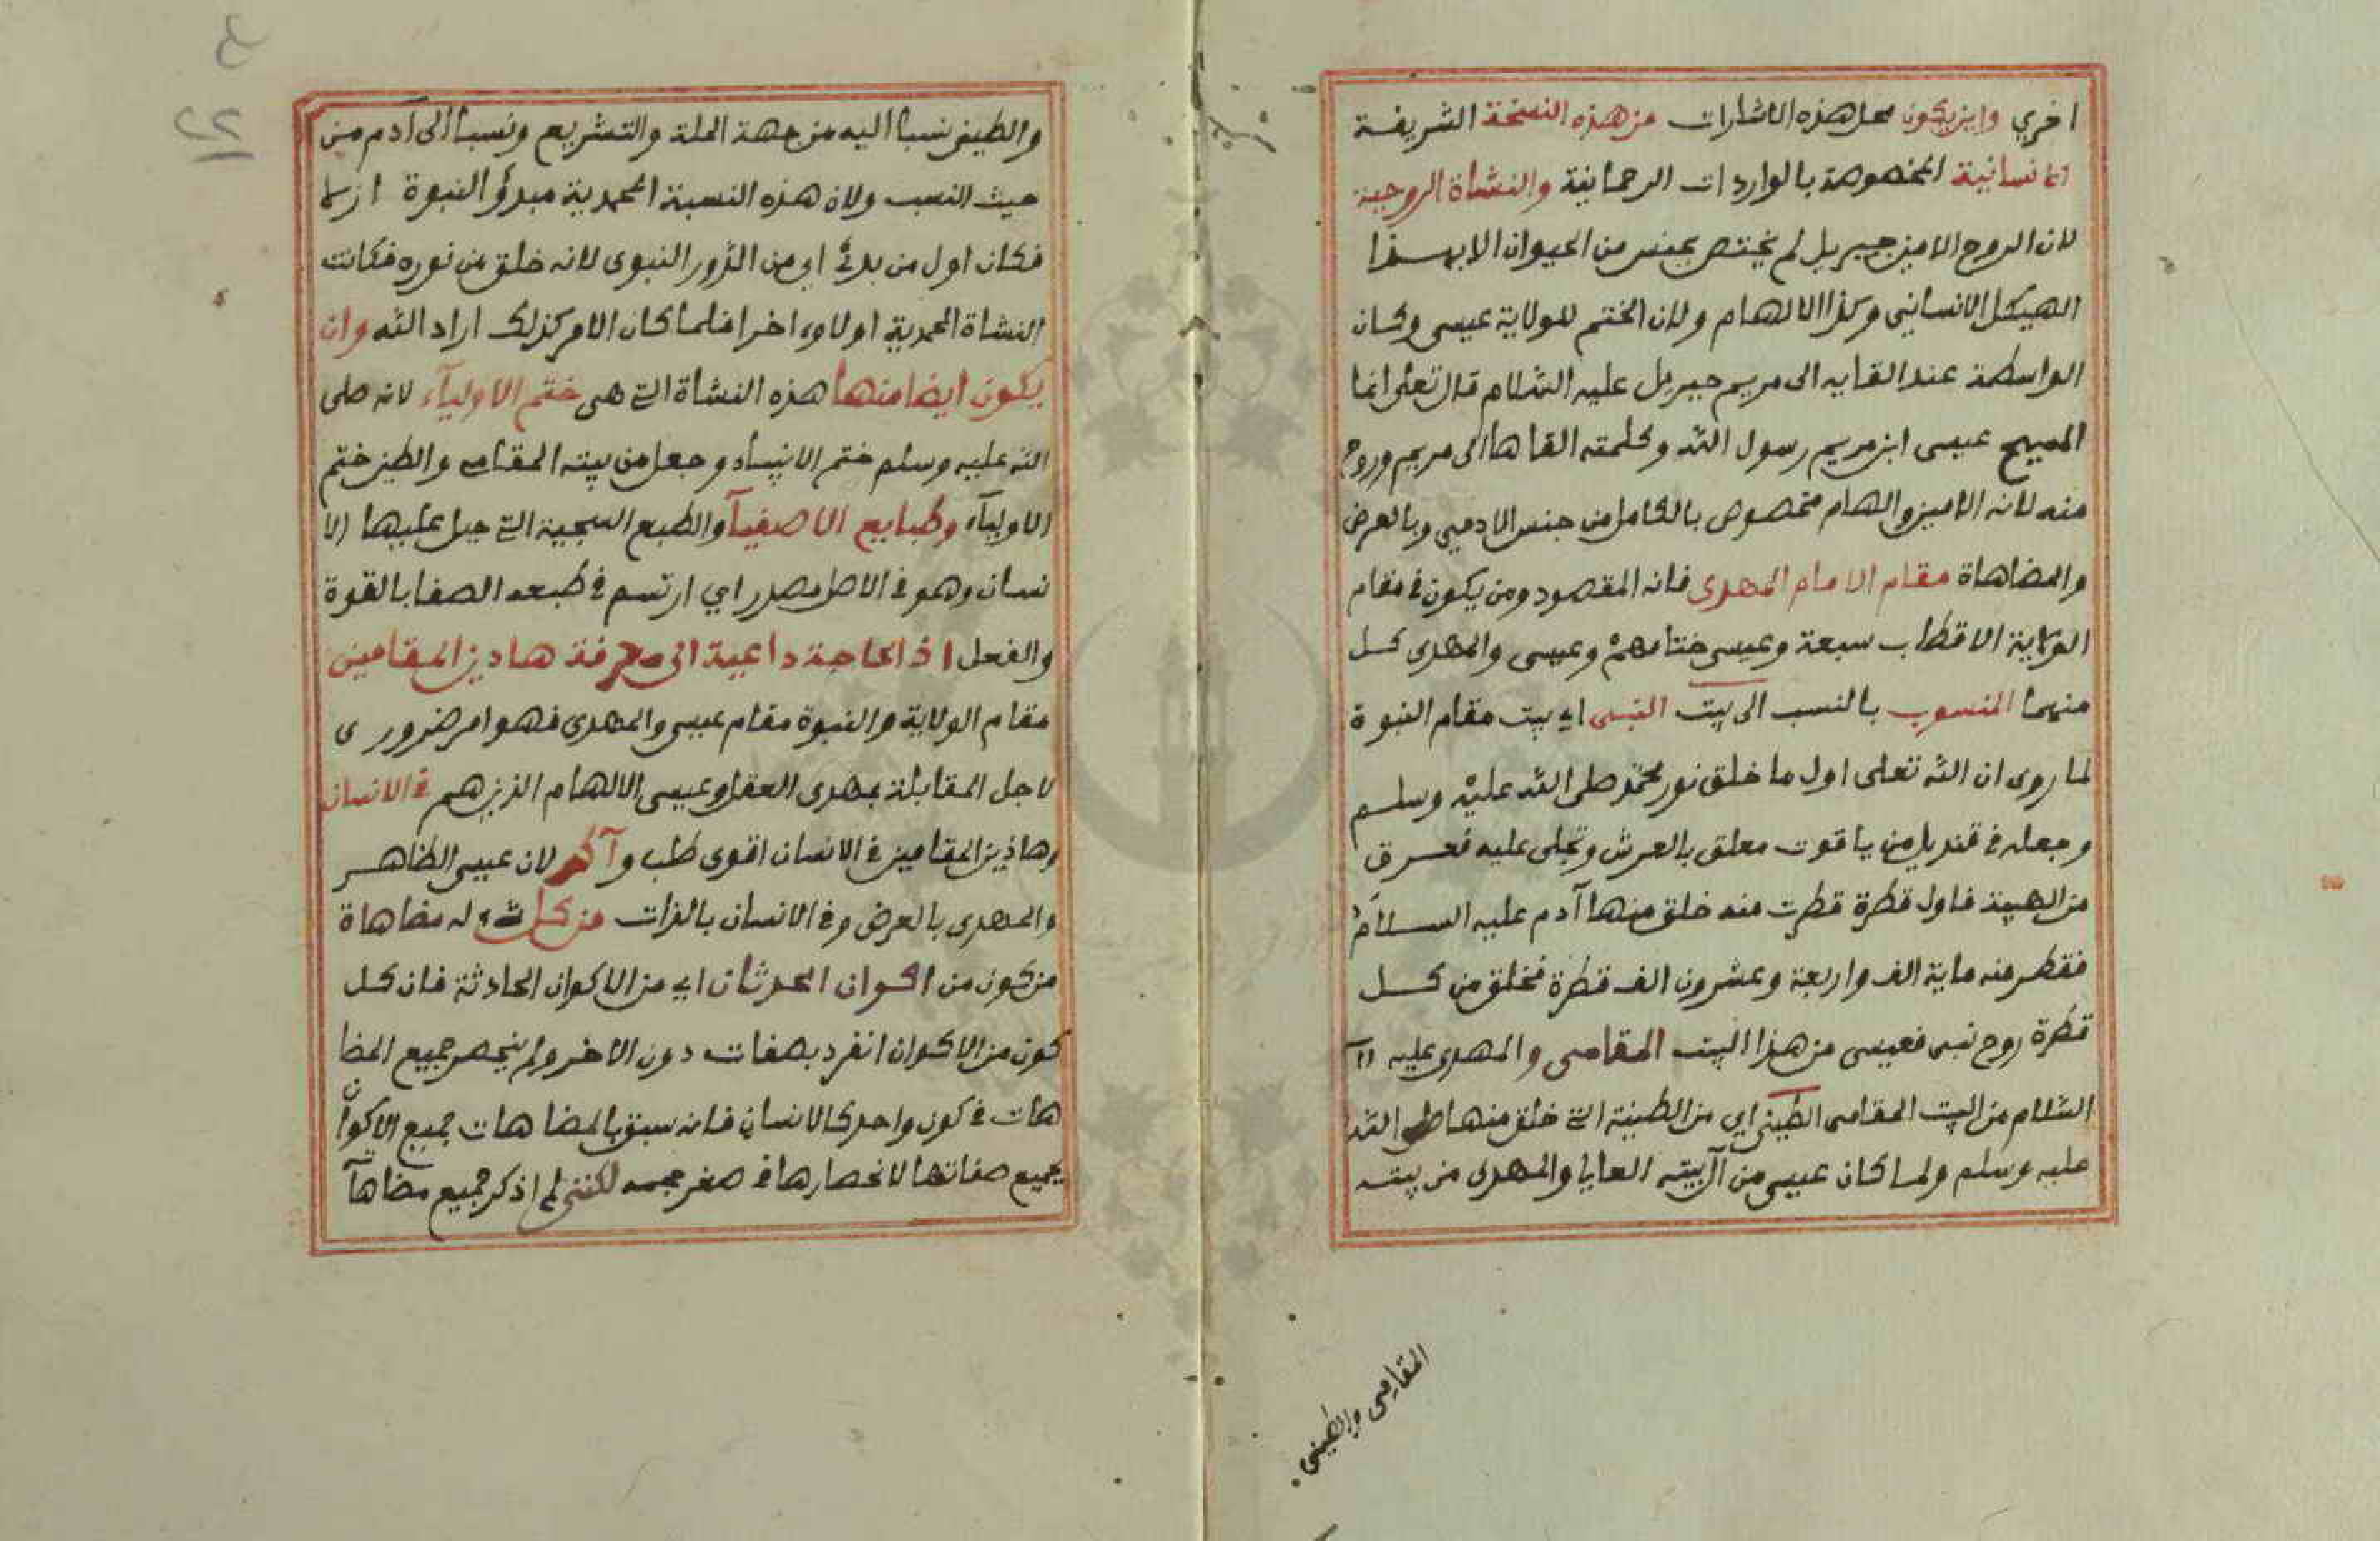 اخري واين يكون محل هذه الاشارات من هذه النسخة الشريفة
الانسانية المخصوصة بالواردات الرحمانية والنشاة الروحية
لان الروح الامين جبريل لم يختص بجنس من الحيوان الا بهذا
الهيكل الانساني وكذا الالهام ولان الختم للولاية عيسى وكان
الواسطة عند القايه الى مريم جبريل عليه السلام قال تعلى انما
المسيح عيسى ابن مريم رسول الله وكلمته القاها الى مريم وروح
منه لانه الامين والهام مخصوص بالكامل من جنس الادمي وبالعرض
والمضاهاة مقام الامام المهدى فانه المقصود ومن يكون في مقام
الولاية الاقطاب سبعة وعيسى ختامهم وعيسى والمهدى كل
منهما المنسوب بالنسب الى بيت النبى اي بيت مقام النبوة
لما روى ان الله تعلى اول ما خلق نور محمد صلى الله عليه وسلم
وجعله في قنديل من ياقوت معلق بالعرش وتجلى عليه فعرق
من الهيبة فاول قطرة قطرت منه خلق منها آدم عليه السلام
فقطر منه ماية الف واربعة وعشرون الف قطرة فخلق من كل
قطرة روح نبى فعيسى من هذا البيت المقامى والمهدى عليه
السلام من البيت المقامى الطينى اي من الطينة التي خلق منها صلى الله
عليه وسلم ولما كان عيسى من آل بيته العايا والمهدى من بيته
المقامى والطينى
والطين نسبا اليه من جهة الملة والتشريع ونسبا الى آدم من
حيث النسب ولان هذه النسبة المحمدية مبدؤ النبوة ازلا
فكان اول من بدئ اي من النور النبوى لانه خلق من نوره فكانت
النشاة المحمدية اولا واخرا فلما كان الامر كذلك اراد الله وان
يكون ايضا منها هذه النشاة التي هى ختم الاولياء لانه صلى
الله عليه وسلم ختم الانبياء وجعل من بيته المقامى والطين ختم
الاولياء وطبايع الاصفيآ والطبع السجية التي جبل عليها الا
نسان وهو في الاصل مصدر اي ارتسم في طبعه الصفا بالقوة
والفعل اذ الحاجة داعية الى معرفة هاذين المقامين
مقام الولاية والنبوة مقام عيسى والمهدى فهو امر ضرورى
لاجل المقابلة بمهدى العقل وعيسى الالهام الذين هم في الانسان
وهاذين المقامين في الانسان اقوى طلب وآكد لان عيسى الظاهر
والمهدى بالعرض وفي الانسان بالذات من كل له مضاهاة
من كون من اكوان الحدثان اي من الاكوان الحادثة فان كل
كون من الاكوان انفرد بصفات دون الاخر ولم ينحصر جميع المضا
هات في كون واحد كالانسان فانه سبق بالمضاهات جميع الاكوان
بجميع صفاتها لانحصارها في صغر حجمه لكننى لم اذكر جميع مضاهآ